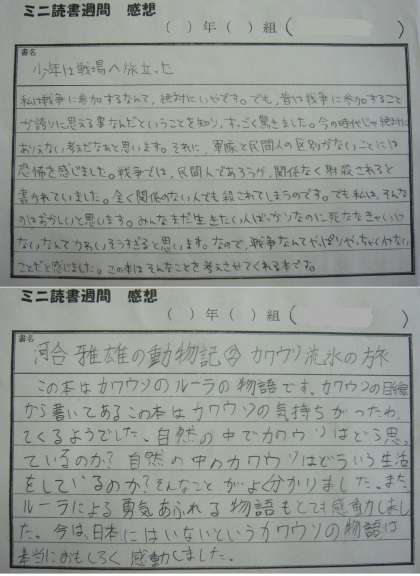 ミニ読書週間 感想
( )年( )組( )
書名
少年は戦場へ旅立った
私は戦争に参加するなんて、絶対にいやです。でも、昔は戦争に参加すること
が誇りに思える事なんだということを知り、すっごく驚きました。今の時代じゃ絶対に
ありえない考えだなあと思います。それに、軍隊と民間人の区別がないことには
恐怖を感じました。戦争では、民間人であろうが、関係なく射殺されると
書かれていました。全く関係のない人でも殺されてしまうのです。でも私は、そんな
のはおかしいと思います。みんなまだ生きたい人ばっかりなのに死ななきゃいけ
ないなんてかわいそうすぎると思います。なので、戦争なんてやっぱりやっちゃいけない
ことだと感じました。この本はそんなことを考えさせてくれる本です。
ミニ読書週間 感想
( )年( )組( )
書名
河合雅雄の動物記② カワウソ流氷の旅
この本はカワウソのルーラの物語です。カワウソの目線
から書いてあるこの本はカワウソの気持ちがつたわっ
てくるようでした。自然の中でカワウソはどう思っ
ているのか?自然の中のカワウソはどういう生活
をしているのか?そんなことがよく分かりました。また、
ルーラによる勇気あふれる物語もとても感動しまし
た。今は、日本にはいないというカワウソの物語は
本当におもしろく感動しました。